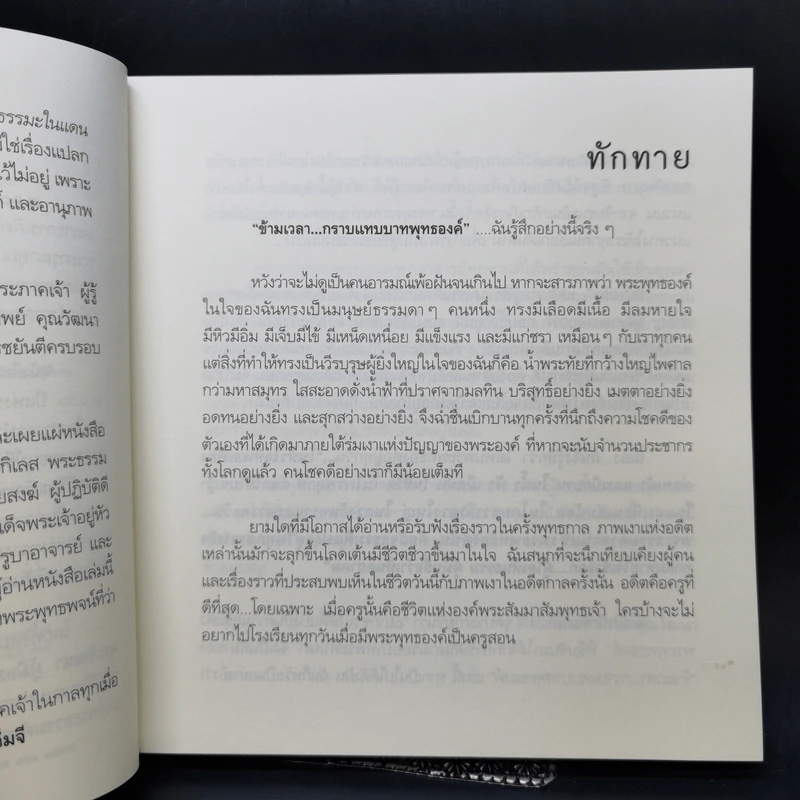 ธรรมะในแดน
ใช่เรื่องแปลก
ว้ไม่อยู่ เพราะ
และอานุภาพ
ระภาคเจ้า ผู้รู้
พย์ คุณวัฒนา
รชยันตีครบรอบ
ละเผยแผ่หนังสือ
กิเลส พระธรรม
ยสงฆ์ ผู้ปฏิบัติดี
ด็จพระเจ้าอยู่หัว
รูบาอาจารย์ และ
ผู้อ่านหนังสือเล่มนี้
งพระพุทธพจน์ที่ว่า
คเจ้าในกาลทุกเมื่อ
ทักทาย
“ข้ามเวลา...กราบแทบบาทพุทธองค์” ....ฉันรู้สึกอย่างนี้จริง ๆ
หวังว่าจะไม่ดูเป็นคนอารมณ์เพ้อฝันจนเกินไป หากจะสารภาพว่า พระพุทธองค์
ในใจของฉันทรงเป็นมนุษย์ธรรมดา ๆ คนหนึ่ง ทรงมีเลือดมีเนื้อ มีลมหายใจ
มีหิวมีอิ่ม มีเจ็บมีไข้ มีเหน็ดเหนื่อย มีแข็งแรง และมีแก่ชรา เหมือน ๆ กับเราทุกคน
แต่สิ่งที่ทำให้ทรงเป็นวีรบุรุษผู้ยิ่งใหญ่ในใจของฉันก็คือ น้ำพระทัยที่กว้างใหญ่ไพศาล
กว่ามหาสมุทร ใสสะอาดดั่งน้ำฟ้าที่ปราศจากมลทิน บริสุทธิ์อย่างยิ่ง เมตตาอย่างยิ่ง
อดทนอย่างยิ่ง และสุกสว่างอย่างยิ่ง จึงฉ่ำชื่นเบิกบานทุกครั้งที่นึกถึงความโชคดีของ
ตัวเองที่ได้เกิดมาภายใต้ร่มเงาแห่งปัญญาของพระองค์ ที่หากจะนับจำนวนประชากร
ทั้งโลกดูแล้ว คนโชคดีอย่างเราก็มีน้อยเต็มที
ยามใดที่มีโอกาสได้อ่านหรือรับฟังเรื่องราวในครั้งพุทธกาล ภาพเงาแห่งอดีต
เหล่านั้นมักจะลุกขึ้นโลดเต้นมีชีวิตชีวาขึ้นมาในใจ ฉันสนุกที่จะนึกเทียบเคียงผู้คน
และเรื่องราวที่ประสบพบเห็นในชีวิตวันนี้กับภาพเงาในอดีตกาลครั้งนั้น อดีตคือครูที่
ดีที่สุด...โดยเฉพาะ เมื่อครูนั้นคือชีวิตแห่งองค์พระสัมมาสัมพุทธเจ้า ใครบ้างจะไม่
อยากไปโรงเรียนทุกวันเมื่อมีพระพุทธองค์เป็นครูสอน